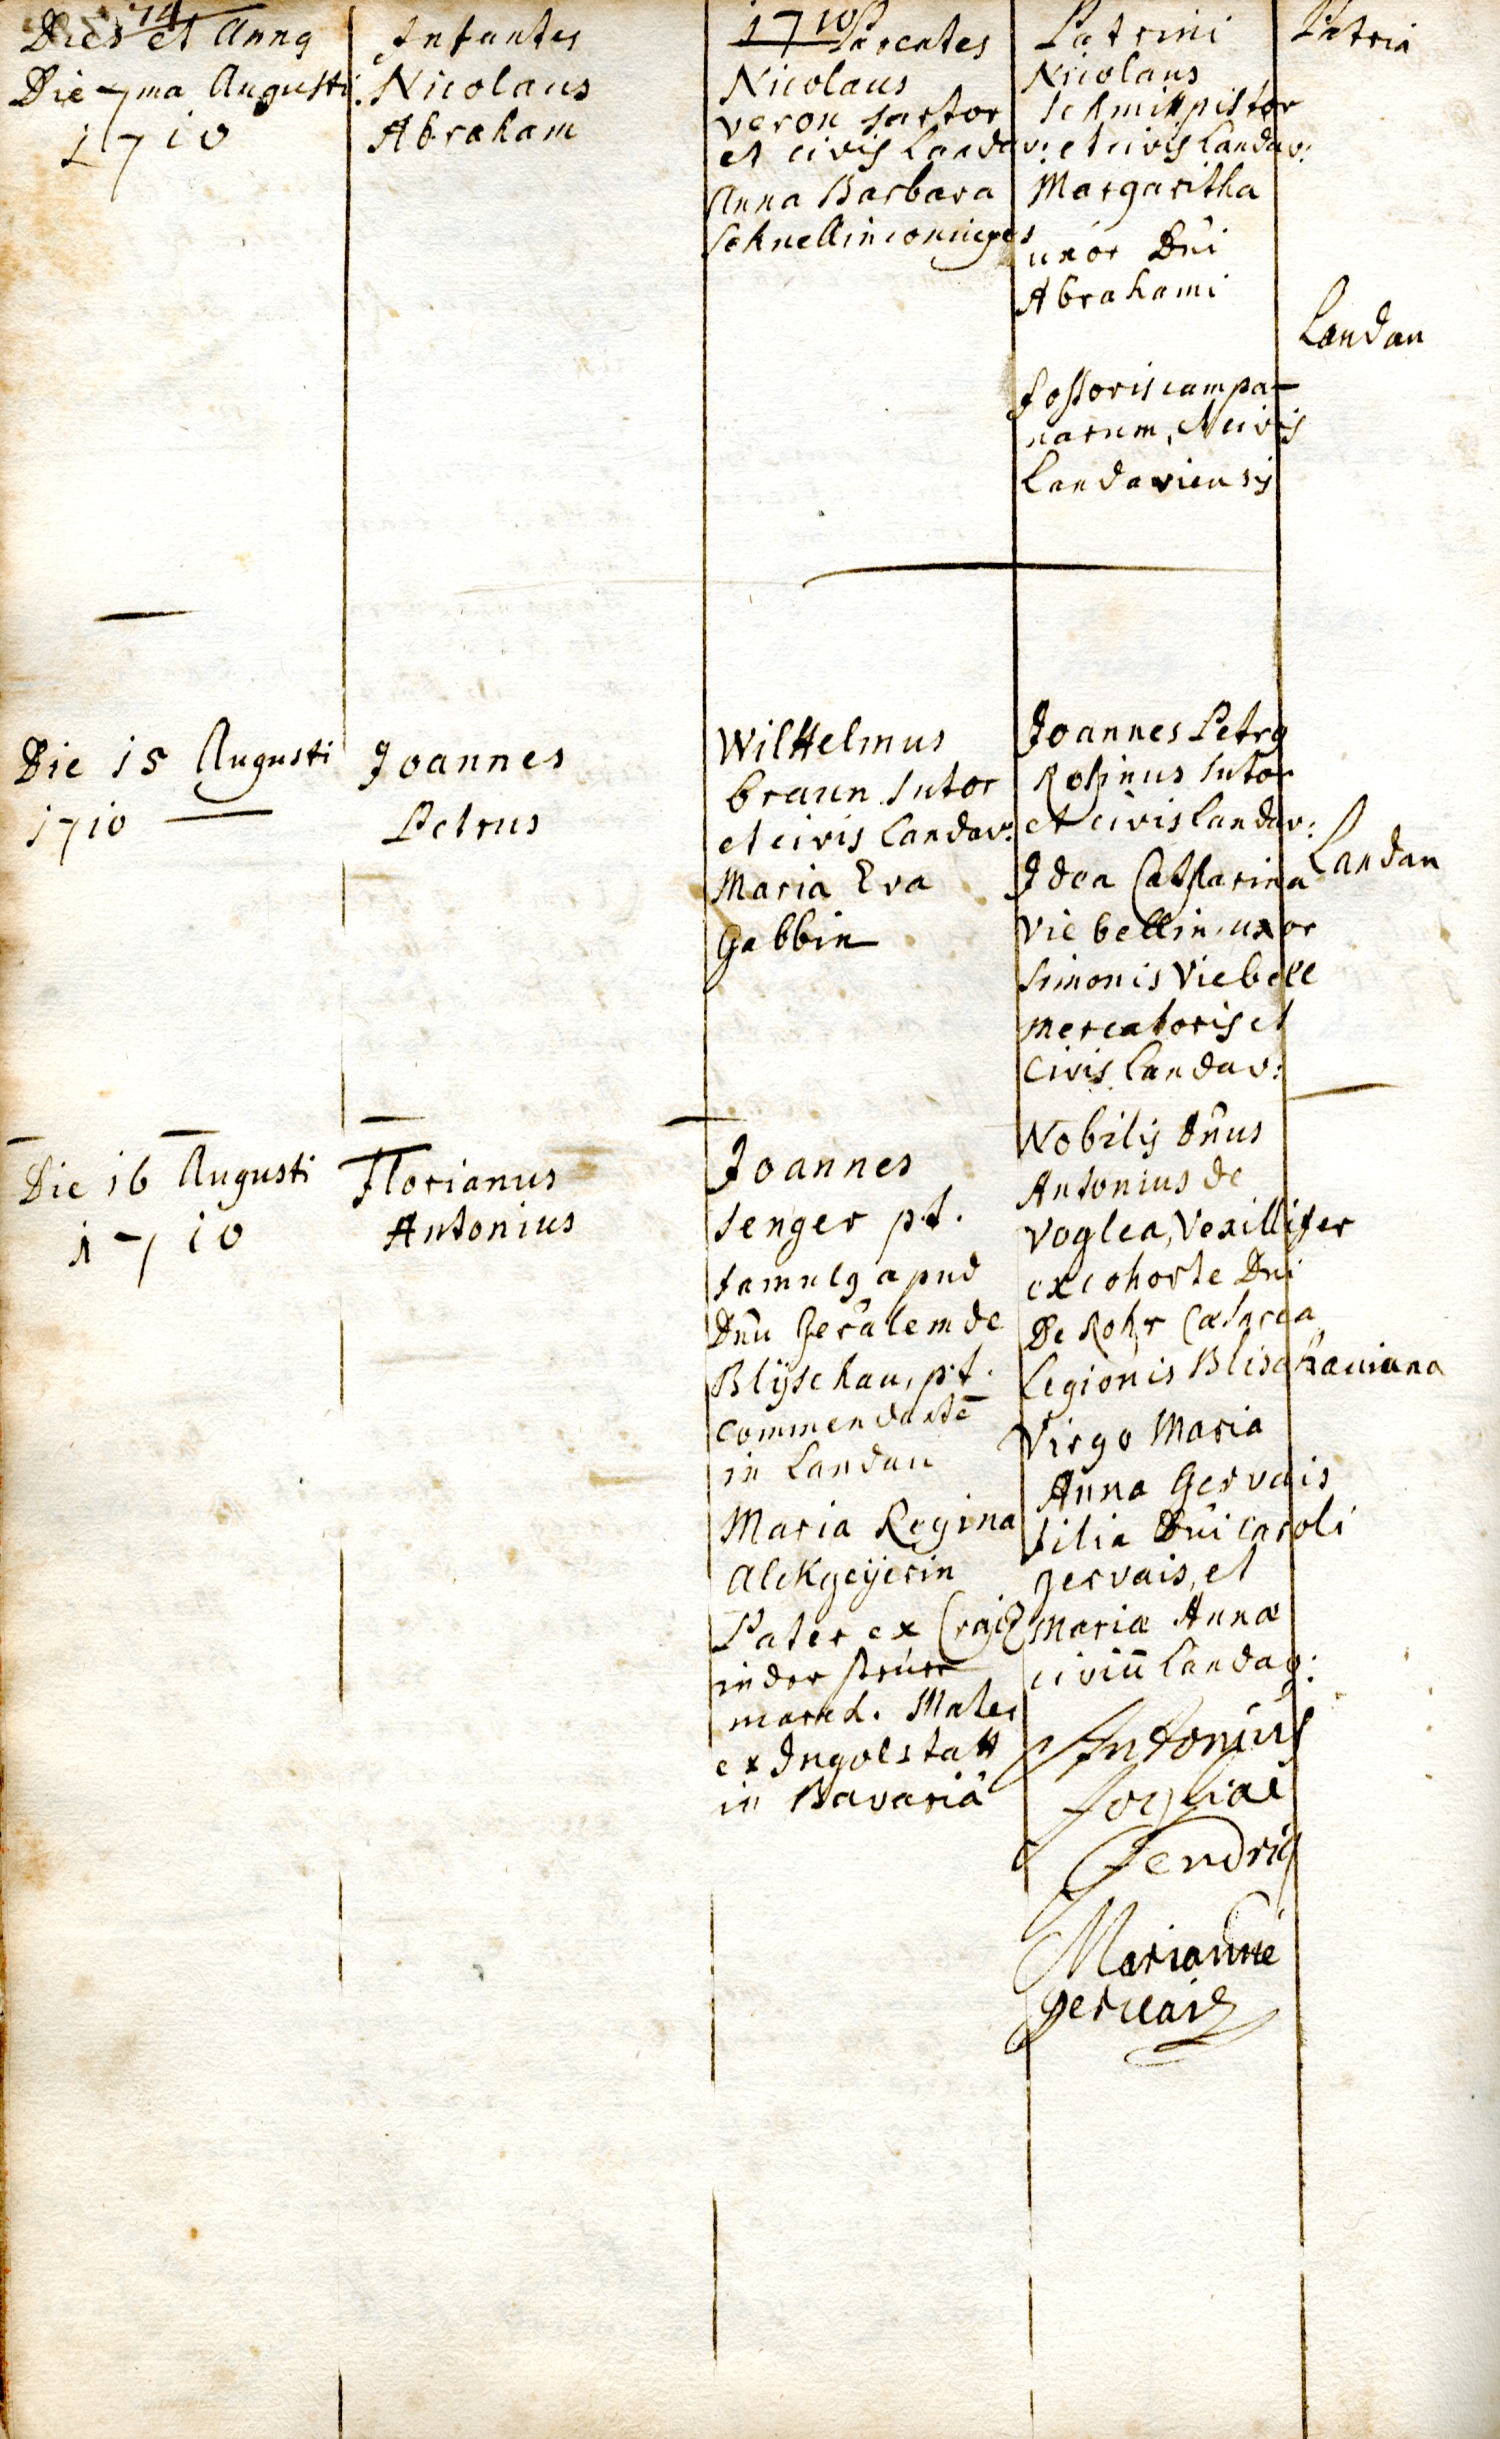 74
1710
Dies et Annq
Infantes
Parentes
Patrini
Patria
Die 7ma Augusti
1710
Nicolaus
Abraham
Nicolaus
veron sartor
et civis Landav:
Anna Barbara
Schnellin coniuges
Nicolaus
Schmitt pistor
et civis Landav:
Margaritha
uxor Dni
Abrahami
fossoris campa-
narum, et civis
Landaviensis
Landau
Die 15 Augusti
1710
Joannes
Petrus
Wilhelmus
braun sutor
et civis Landav:
Maria Eva
Gabbin
Joannes Petrq
Rosinus sutor
et civis Landav:
Idea Catharina
Viebellin, uxor
Simonis Viebell
mercatoris et
Civis Landav:
Landau
Die 16 Augusti
1710
Florianus
Antonius
Joannes
senger p.t.
famulq apud
Dnu Geralem de
Blyschau, p.t.
commendantē
in Landau
Maria Regina
Alckgeyerin
Pater ex
in der
march. Mater
ex Ingolstatt
in Bavariâ
Nobilis dnus
Antonius de
Voglea, Vexillifer
ex cohorte Dni
De Rohr Cæsarea
Legionis Blischauiana
Virgo Maria
Anna Gervais
filia Dni Caroli
gervais, et
Mariæ Annæ
civiū Landav:
Antonius
fogliae
fendrig
Marianne
gervais